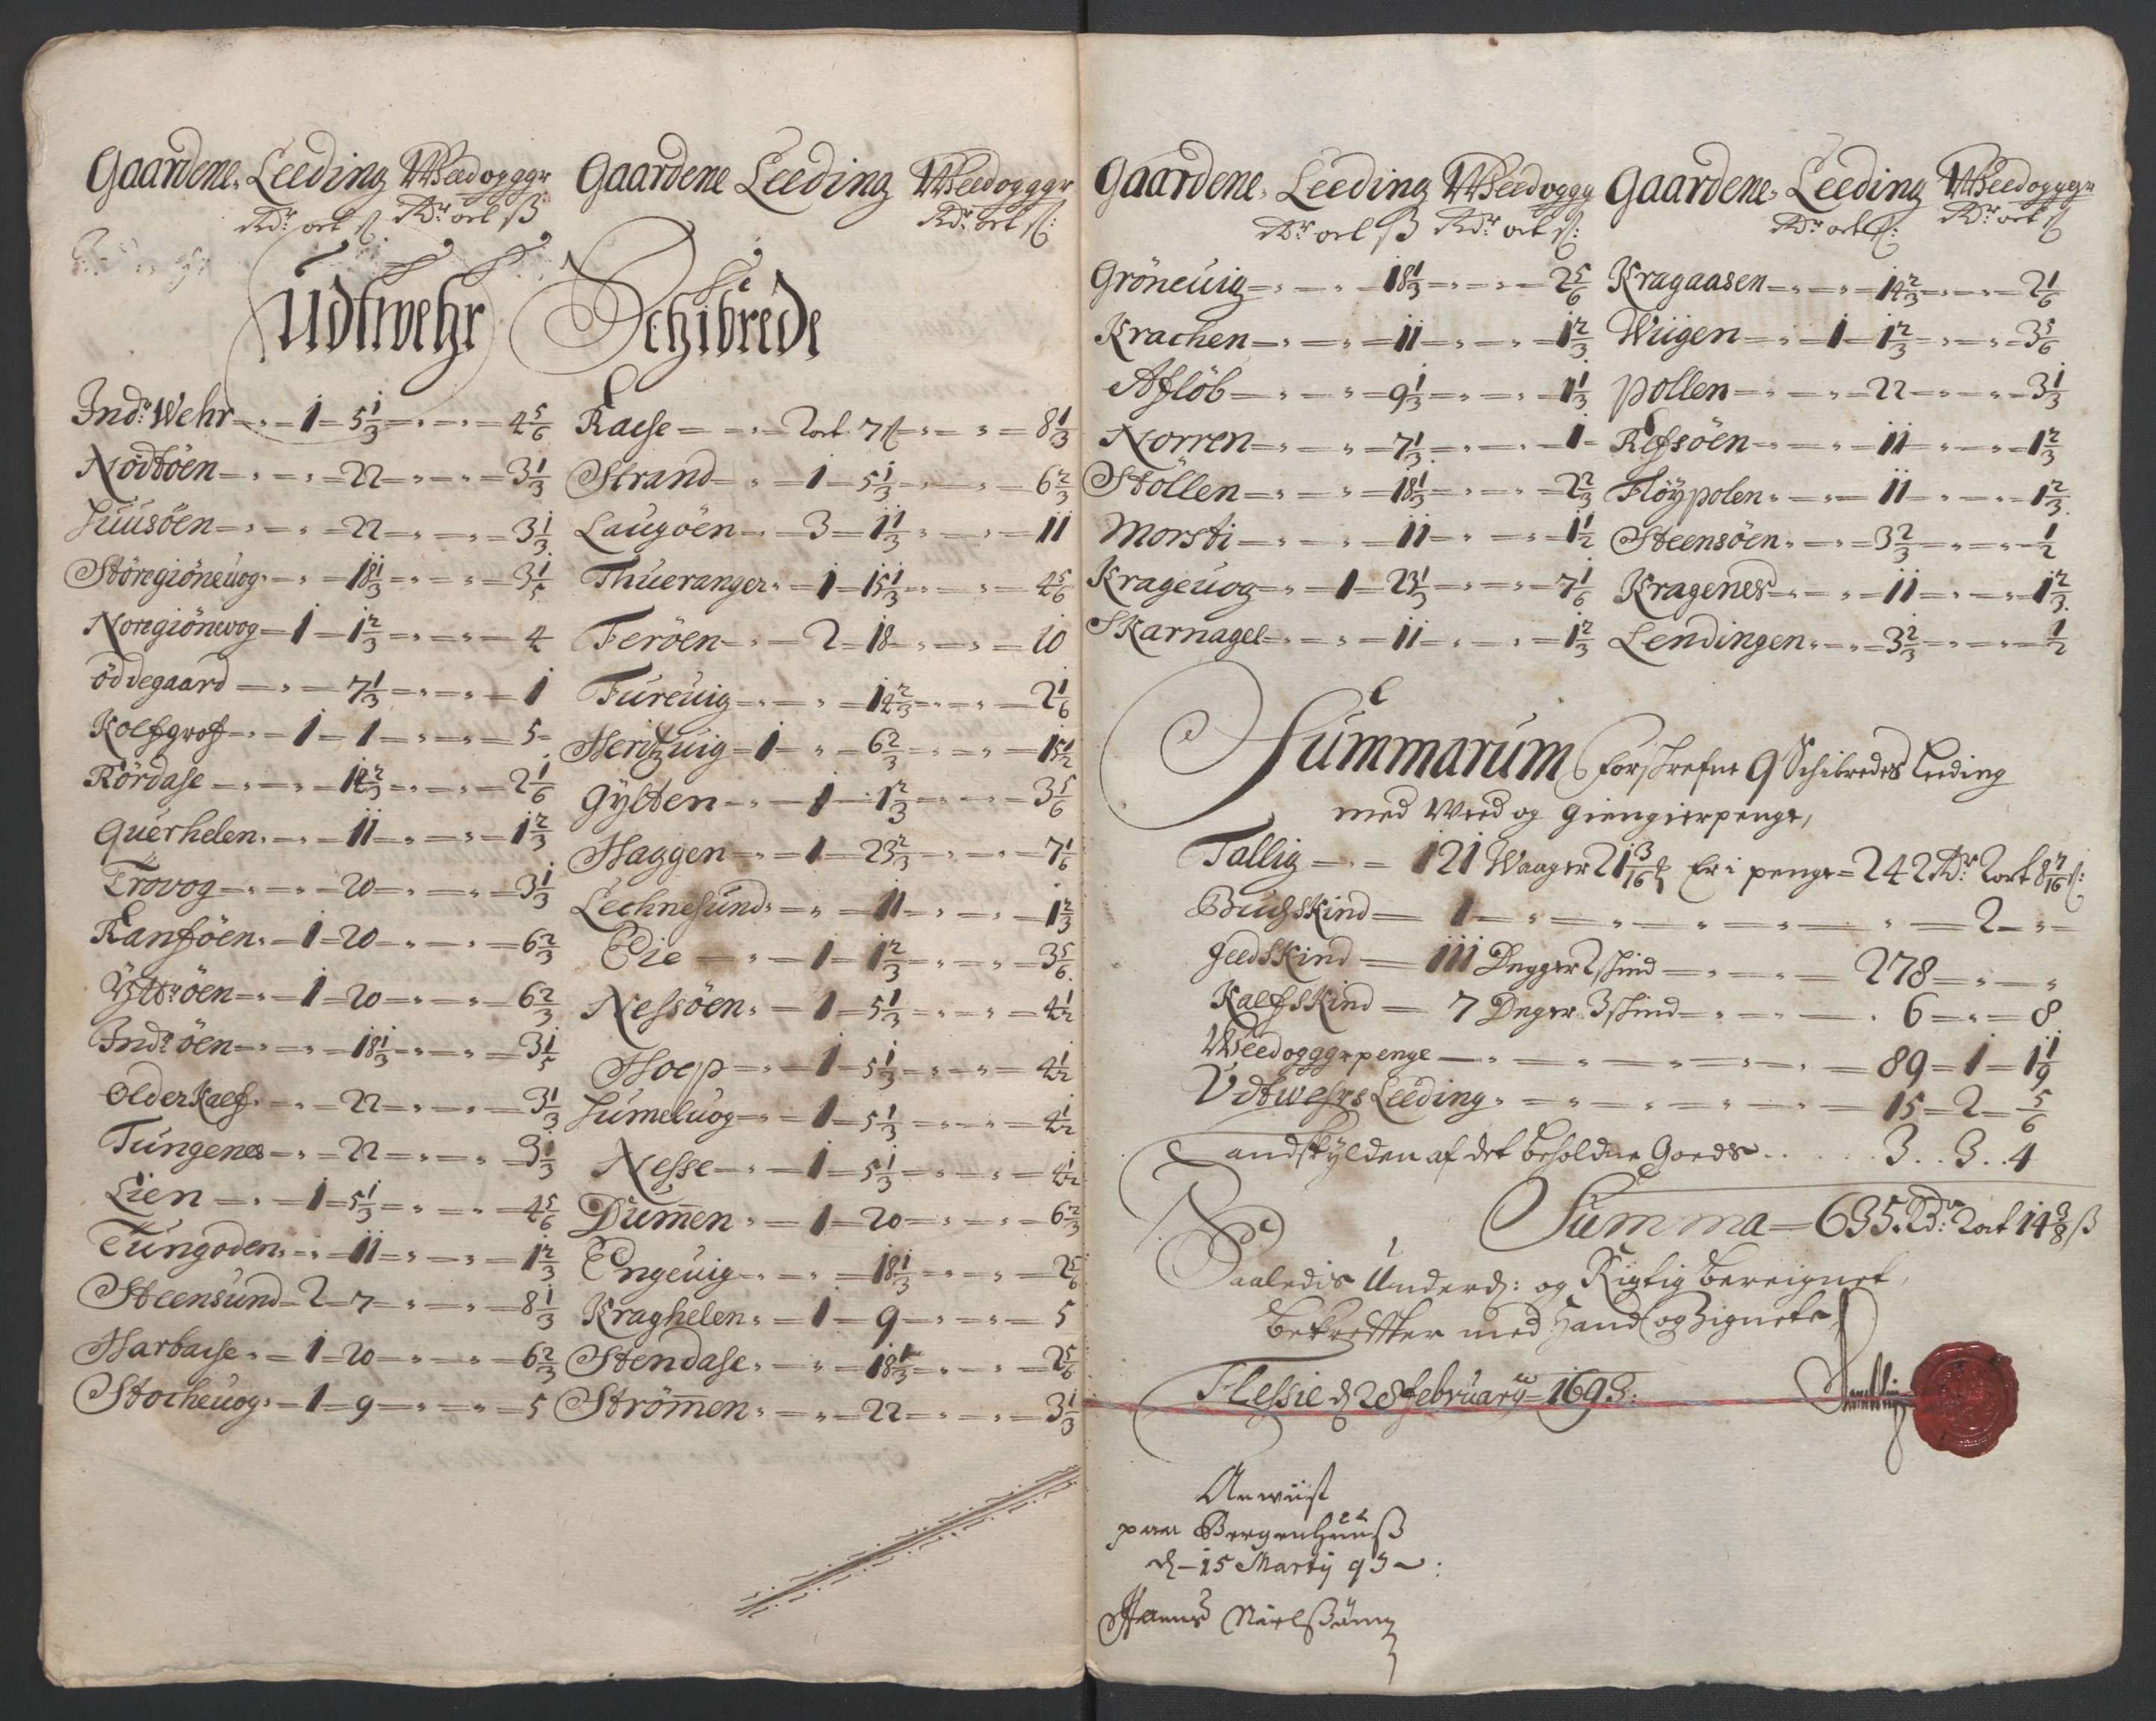 Gaardene. Leeding Weedogggr
Rdr ort ß Rdr ort ß
Gaardene Leeding Weedogggr
Rdr ort ß:
Udtwehr Schibrede
Indr Wehr 1 5 1/3 4 5/6
Nödtöen 22 3 1/3
Huusöen 22 3 1/3
Störegiöneuog 18 1/3 3 1/5
Noregiönwog 1 1 2/3 4
ödvegaard 7 1/3 1
Kolfgrof 1 1 5
Rördase 14 2/3 2 1/6
Querhelen 11 1 2/3
Trovog 20 3 1/3
Ranföen 1 20 6 2/3
Yttröen 1 20 6 2/3
Indröen 18 1/3 3 1/5
Olderkalf 22 3 1/3
Tungenes 22 3 1/3
Lien 1 5 1/3 4 5/6
Tungoden 11 1 2/3
Steensund 2 7 8 1/3
Harbaise 1 20 6 2/3
Stocheuog 1 9 5
Raese 2 ort 7 ß 8 1/3
Strand 1 5 1/3 6 2/3
Laugöen 3 11 1/3 11
Thueranger 1 15 1/3 4 5/6
Feröen 2 18 10
Fureuig 14 2/3 2 1/6
Heritzuig 1 6 2/3 15 1/2
Gylten 1 1 2/3 3 5/6
Haggen 1 23 2/3 7 1/6
Lechnesund 11 1 2/3
Eie 1 1 2/3 3 5/6
Nessöen 1 5 1/3 4 1/2
Hoep 1 5 1/3 4 1/2
Humeluog 1 5 1/3 4 1/2
Nesse 1 5 1/3 4 1/2
Dumen 1 20 6 2/3
Engeuig 18 1/3 2 5/6
Kraghelen 1 9 5
Stendase 18 1/3 2 5/6
Strömen 22 3 1/3
Gaardene. Leeding Weedoggg
Rdr ort ß Rdr ort ß:
Gröneuig 18 1/3 2 5/6
Krachen 11 1 2/3
Aflöb 9 1/3 1 1/3
Norren 7 1/3 1
Stöllen 18 1/3 2 2/3
Morsti 11 1 1/2
Krageuog 1 23 1/3 7 1/6
Skarnagel 11 1 2/3
Gaardene. Leeding Weedogggr
Rdr ort ß: Rdr ort ß
Kragaasen 14 2/3 2 1/6
Wiigen 1 1 2/3 3 5/6
Pollen 22 3 1/3
Refsöen 11 1 2/3
Flöypolen 11 1 2/3
Steensöen 3 2/3 1/2
Kragenes 11 1 2/3
Lendingen 3 2/3 1/2
Summarum forskrefne 9 Schibredes Leding
med Weed og Giengierpenge,
Tallig 121 Waager 21 3/16 Er i penge 242 Rdr 2 ort 8 7/16 ß:
Buchskind 1 2
Geedskind 111 Degger 2 skind 278
Kalfskind 7 Deger 3 skind 6 8
Weedogggrpenge 89 1 1 1/9
Udtwehrs Leeding 15 2 5/6
Landskylden af det beholdne Goeds 3 . . 3 . . 4
Summa 635 Rdr: 2 ort 14 3/8 ß
Saaledis Underd: og Rigtig bereignet,
bekreffter med Hand og Zignete,
Flessie d 28 februarij 1693:
Anwiist
paa Bergenhuuß
d 15 Martij 93
Hanns Nielßönn